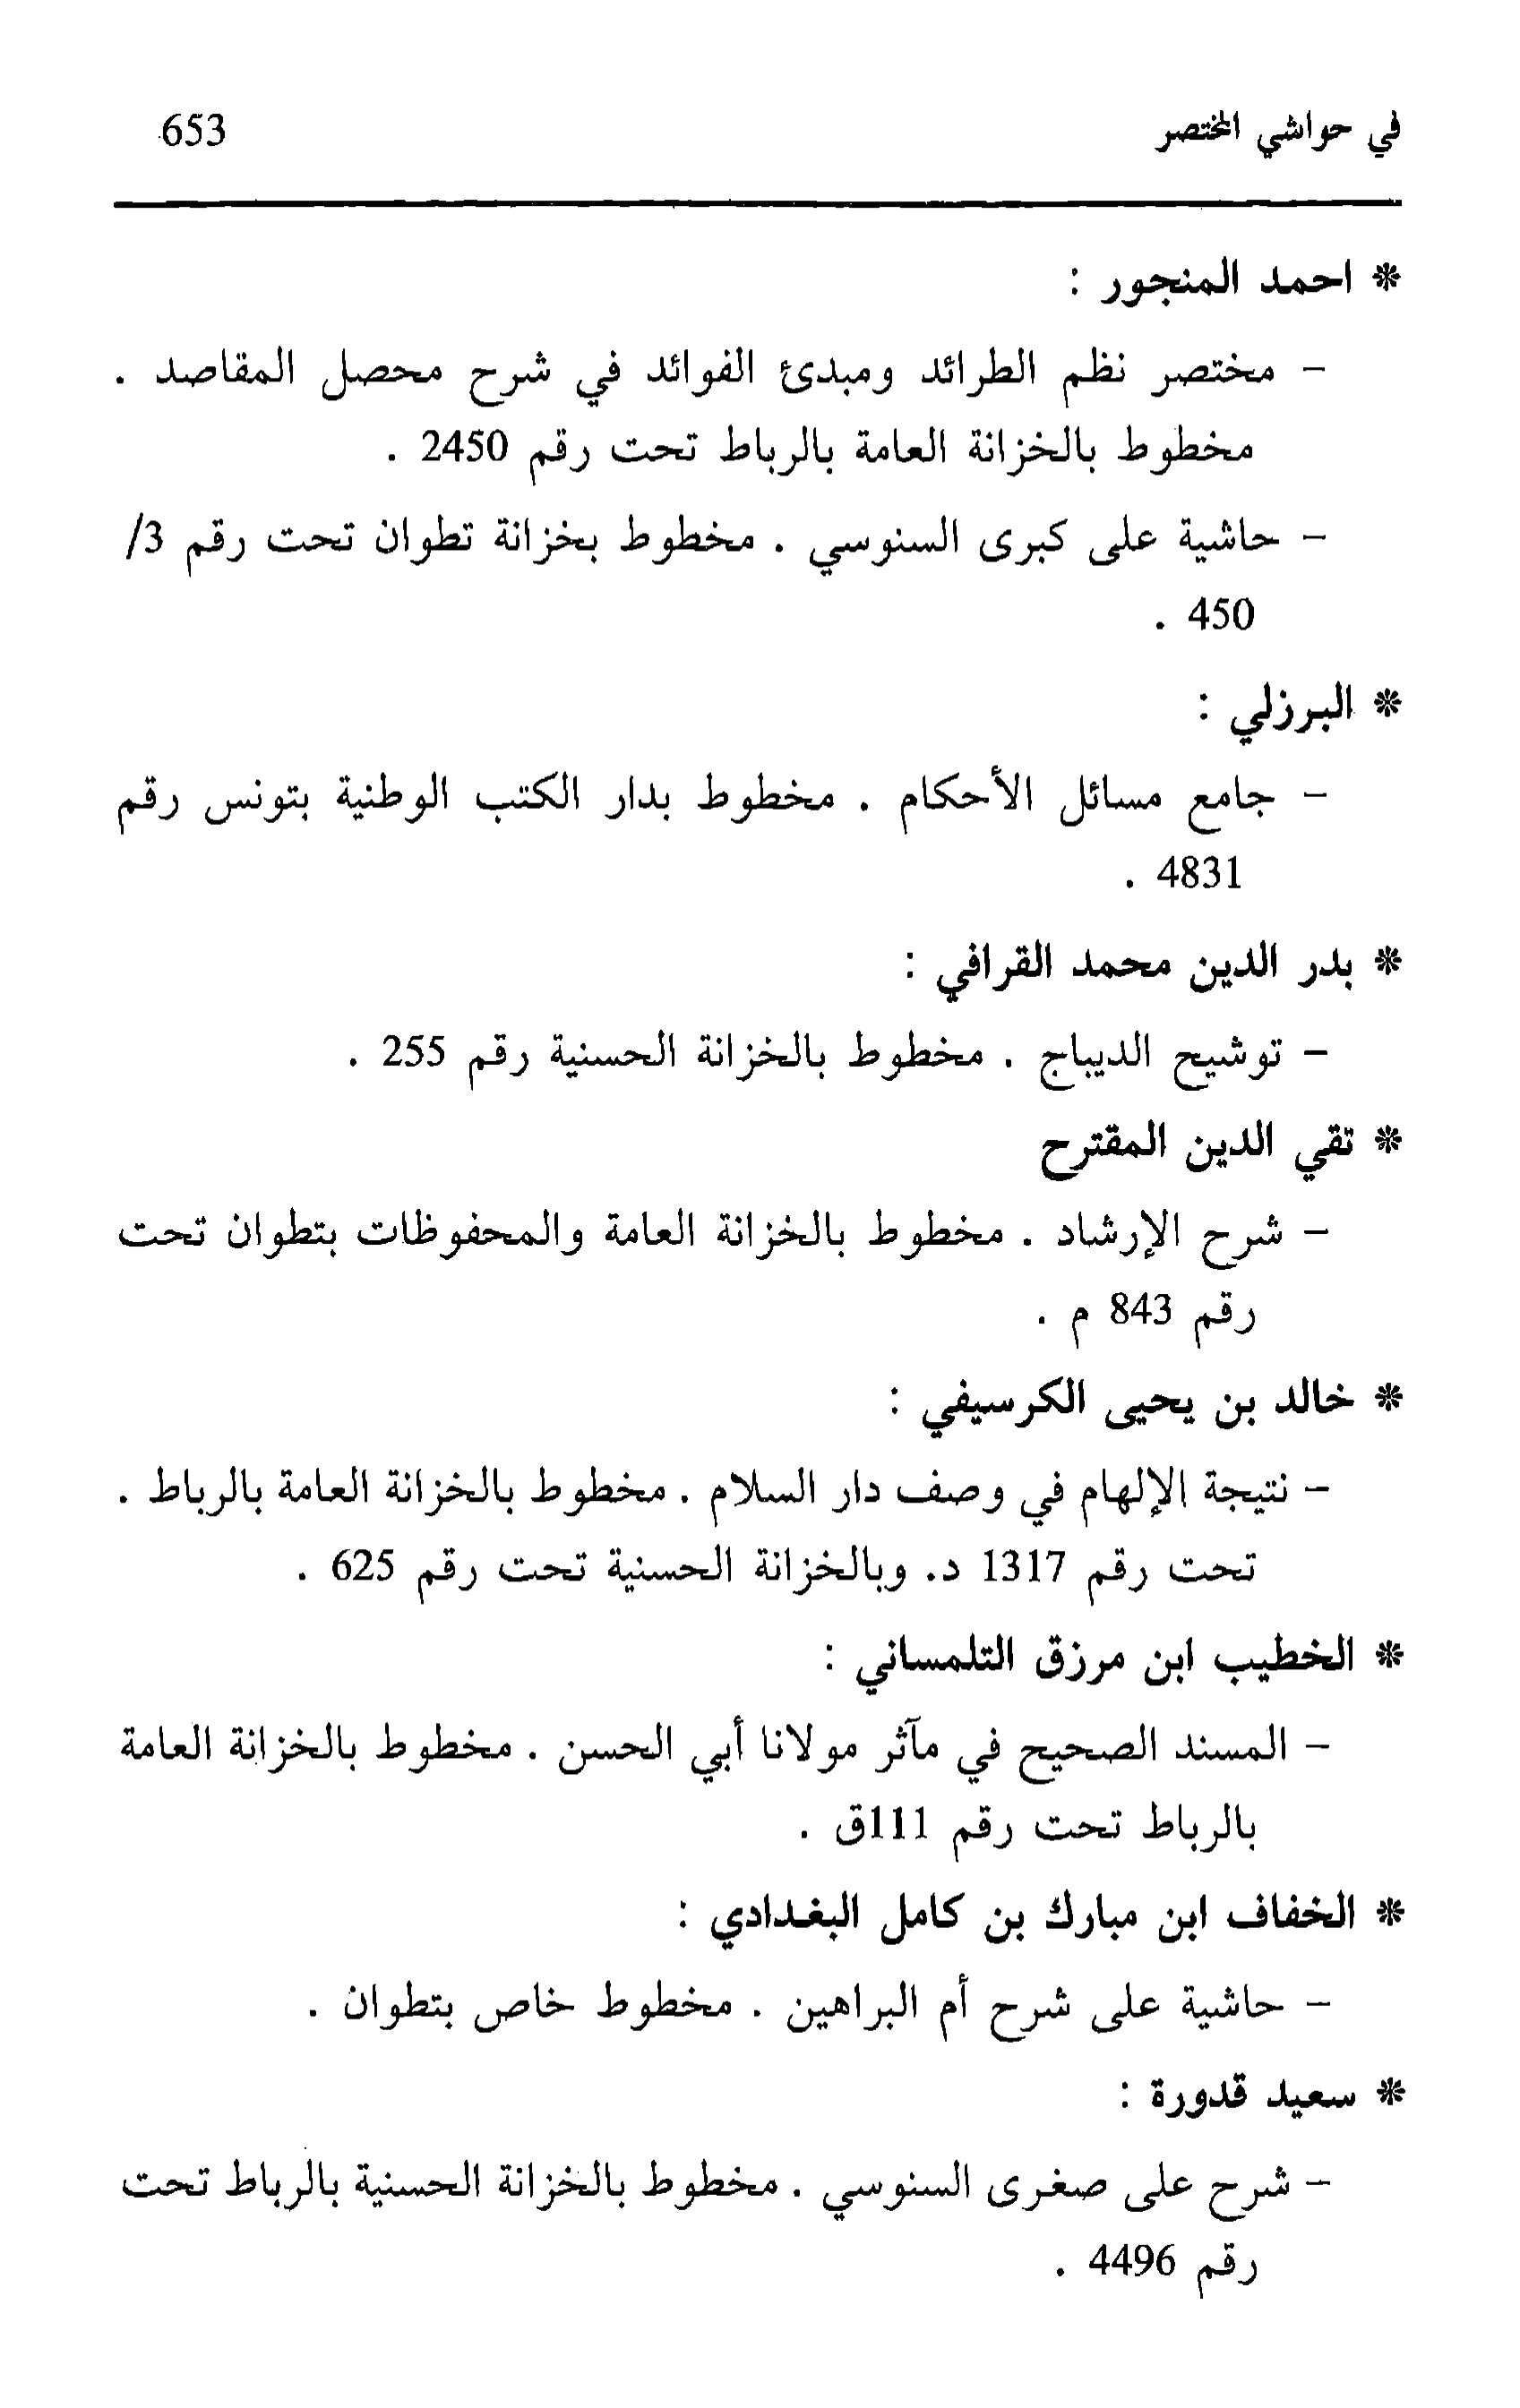 في حواشي المختصر 653
* احمد المنجور :
- مختصر نظم الطرائد ومبدئ الفوائد في شرح محصل المقاصد .
مخطوط بالخزانة العامة بالرباط تحت رقم 2450 .
- حاشية على كبرى السنوسي . مخطوط بخزانة تطوان تحت رقم 3/
450 .
* البرزلي :
- جامع مسائل الأحكام . مخطوط بدار الكتب الوطنية بتونس رقم
4831 .
* بدر الدين محمد القرافي :
- توشيح الديباج . مخطوط بالخزانة الحسنية رقم 255 .
* تقي الدين المقترح
- شرح الإرشاد . مخطوط بالخزانة العامة والمحفوظات بتطوان تحت
رقم 843 م .
* خالد بن يحيى الكرسيفي :
- نتيجة الإلهام في وصف دار السلام . مخطوط بالخزانة العامة بالرباط .
تحت رقم 1317 د. وبالخزانة الحسنية تحت رقم 625 .
* الخطيب ابن مرزق التلمساني :
- المسند الصحيح في مآثر مولانا أبي الحسن . مخطوط بالخزانة العامة
بالرباط تحت رقم 111ق .
* الخفاف ابن مبارك بن كامل البغدادي :
- حاشية على شرح أم البراهين . مخطوط خاص بتطوان .
* سعيد قدورة :
- شرح على صغرى السنوسي . مخطوط بالخزانة الحسنية بالرباط تحت
رقم 4496 .